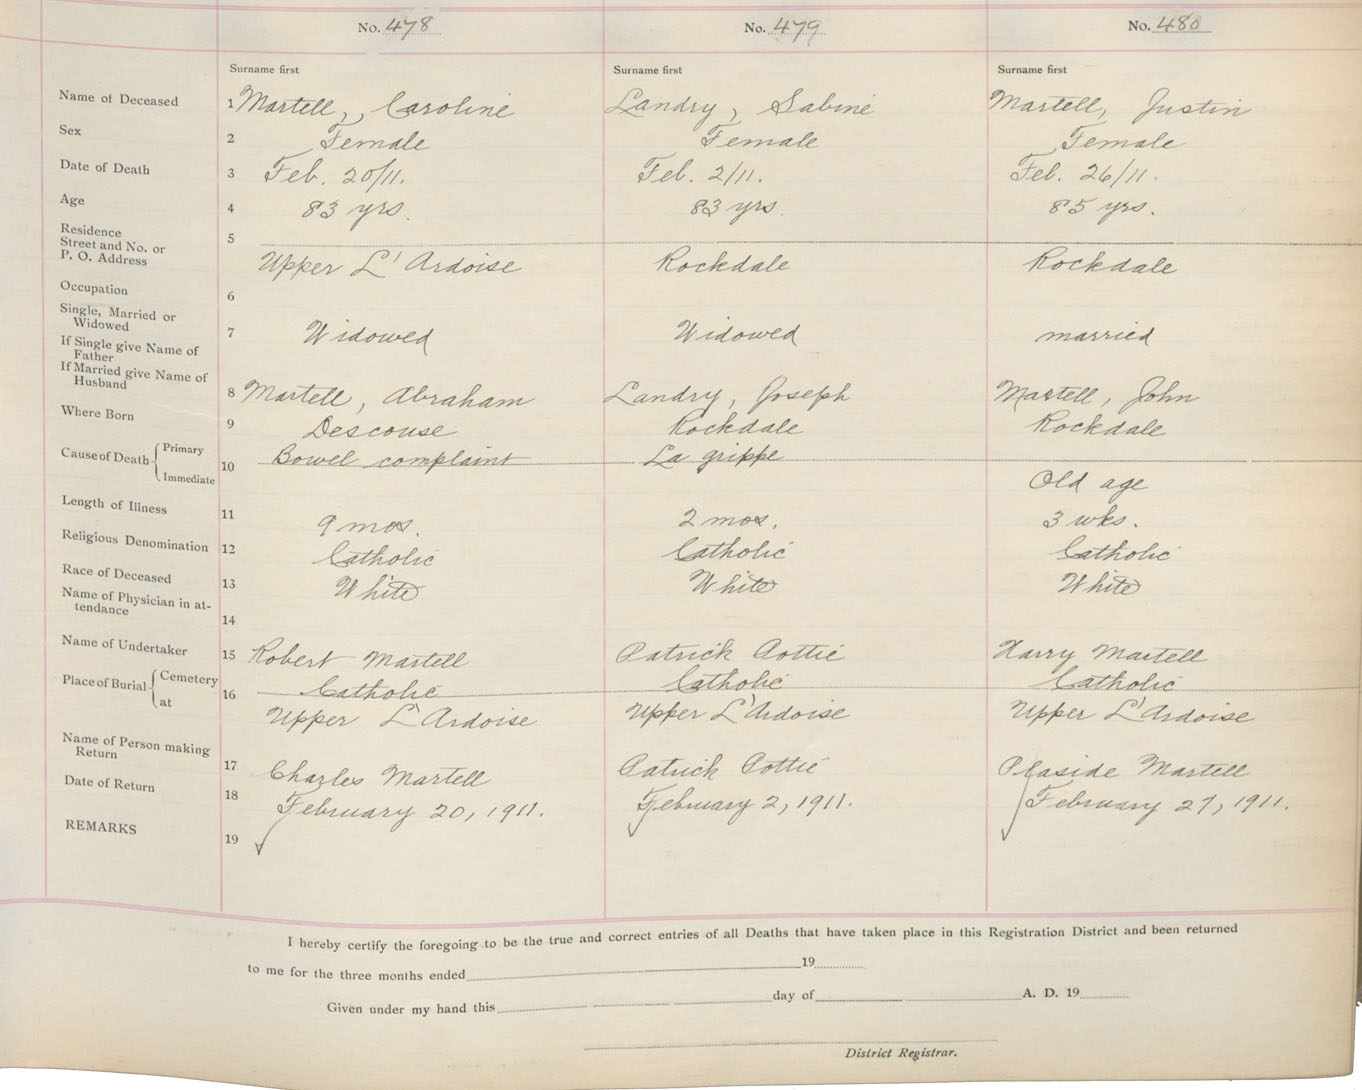 No. 478 No. 479 No. 480
Surname first Surname first Surname first
Name of Deceased 1 Martell, Caroline Landry, Sabine Martell, Justin
Sex 2 Female Female Female
Date of Death 3 Feb. 20/11. Feb. 2/11. Feb. 26/11.
Age 4 83 yrs. 83 yrs. 85 yrs.
Residence 5
Street and No. or
P. O. Address Upper L'Ardoise Rockdale Rockdale
Occupation 6
Single, Married or
Widowed 7 Widowed Widowed married
If Single give Name of
Father
If Married give Name of
Husband 8 Martell, Abraham Landry, Joseph Martell, John
Where Born 9 Descouse Rockdale Rockdale
Cause of Death Primary 10 Bowel complaint La grippe
Immediate Old age
Length of Illness 11 9 mos. 2 mos. 3 wks.
Religious Denomination 12 Catholic Catholic Catholic
Race of Deceased 13 White White White
Name of Physician in at-
tendance 14
Name of Undertaker 15 Robert Martell Patrick Pottie Harry Martell
Place of Burial Cemetery 16 Catholic Catholic Catholic
at Upper L'Ardoise Upper L'Ardoise Upper L'Ardoise
Name of Person making
Return 17 Charles Martell Patrick Pottie Plaside Martell
Date of Return 18 February 20, 1911. February 2, 1911. February 27, 1911.
REMARKS 19
I hereby certify the foregoing to be the true and correct entries of all Deaths that have taken place in this Registration District and been returned
to me for the three months ended 19
Given under my hand this day of A. D. 19
District Registrar.